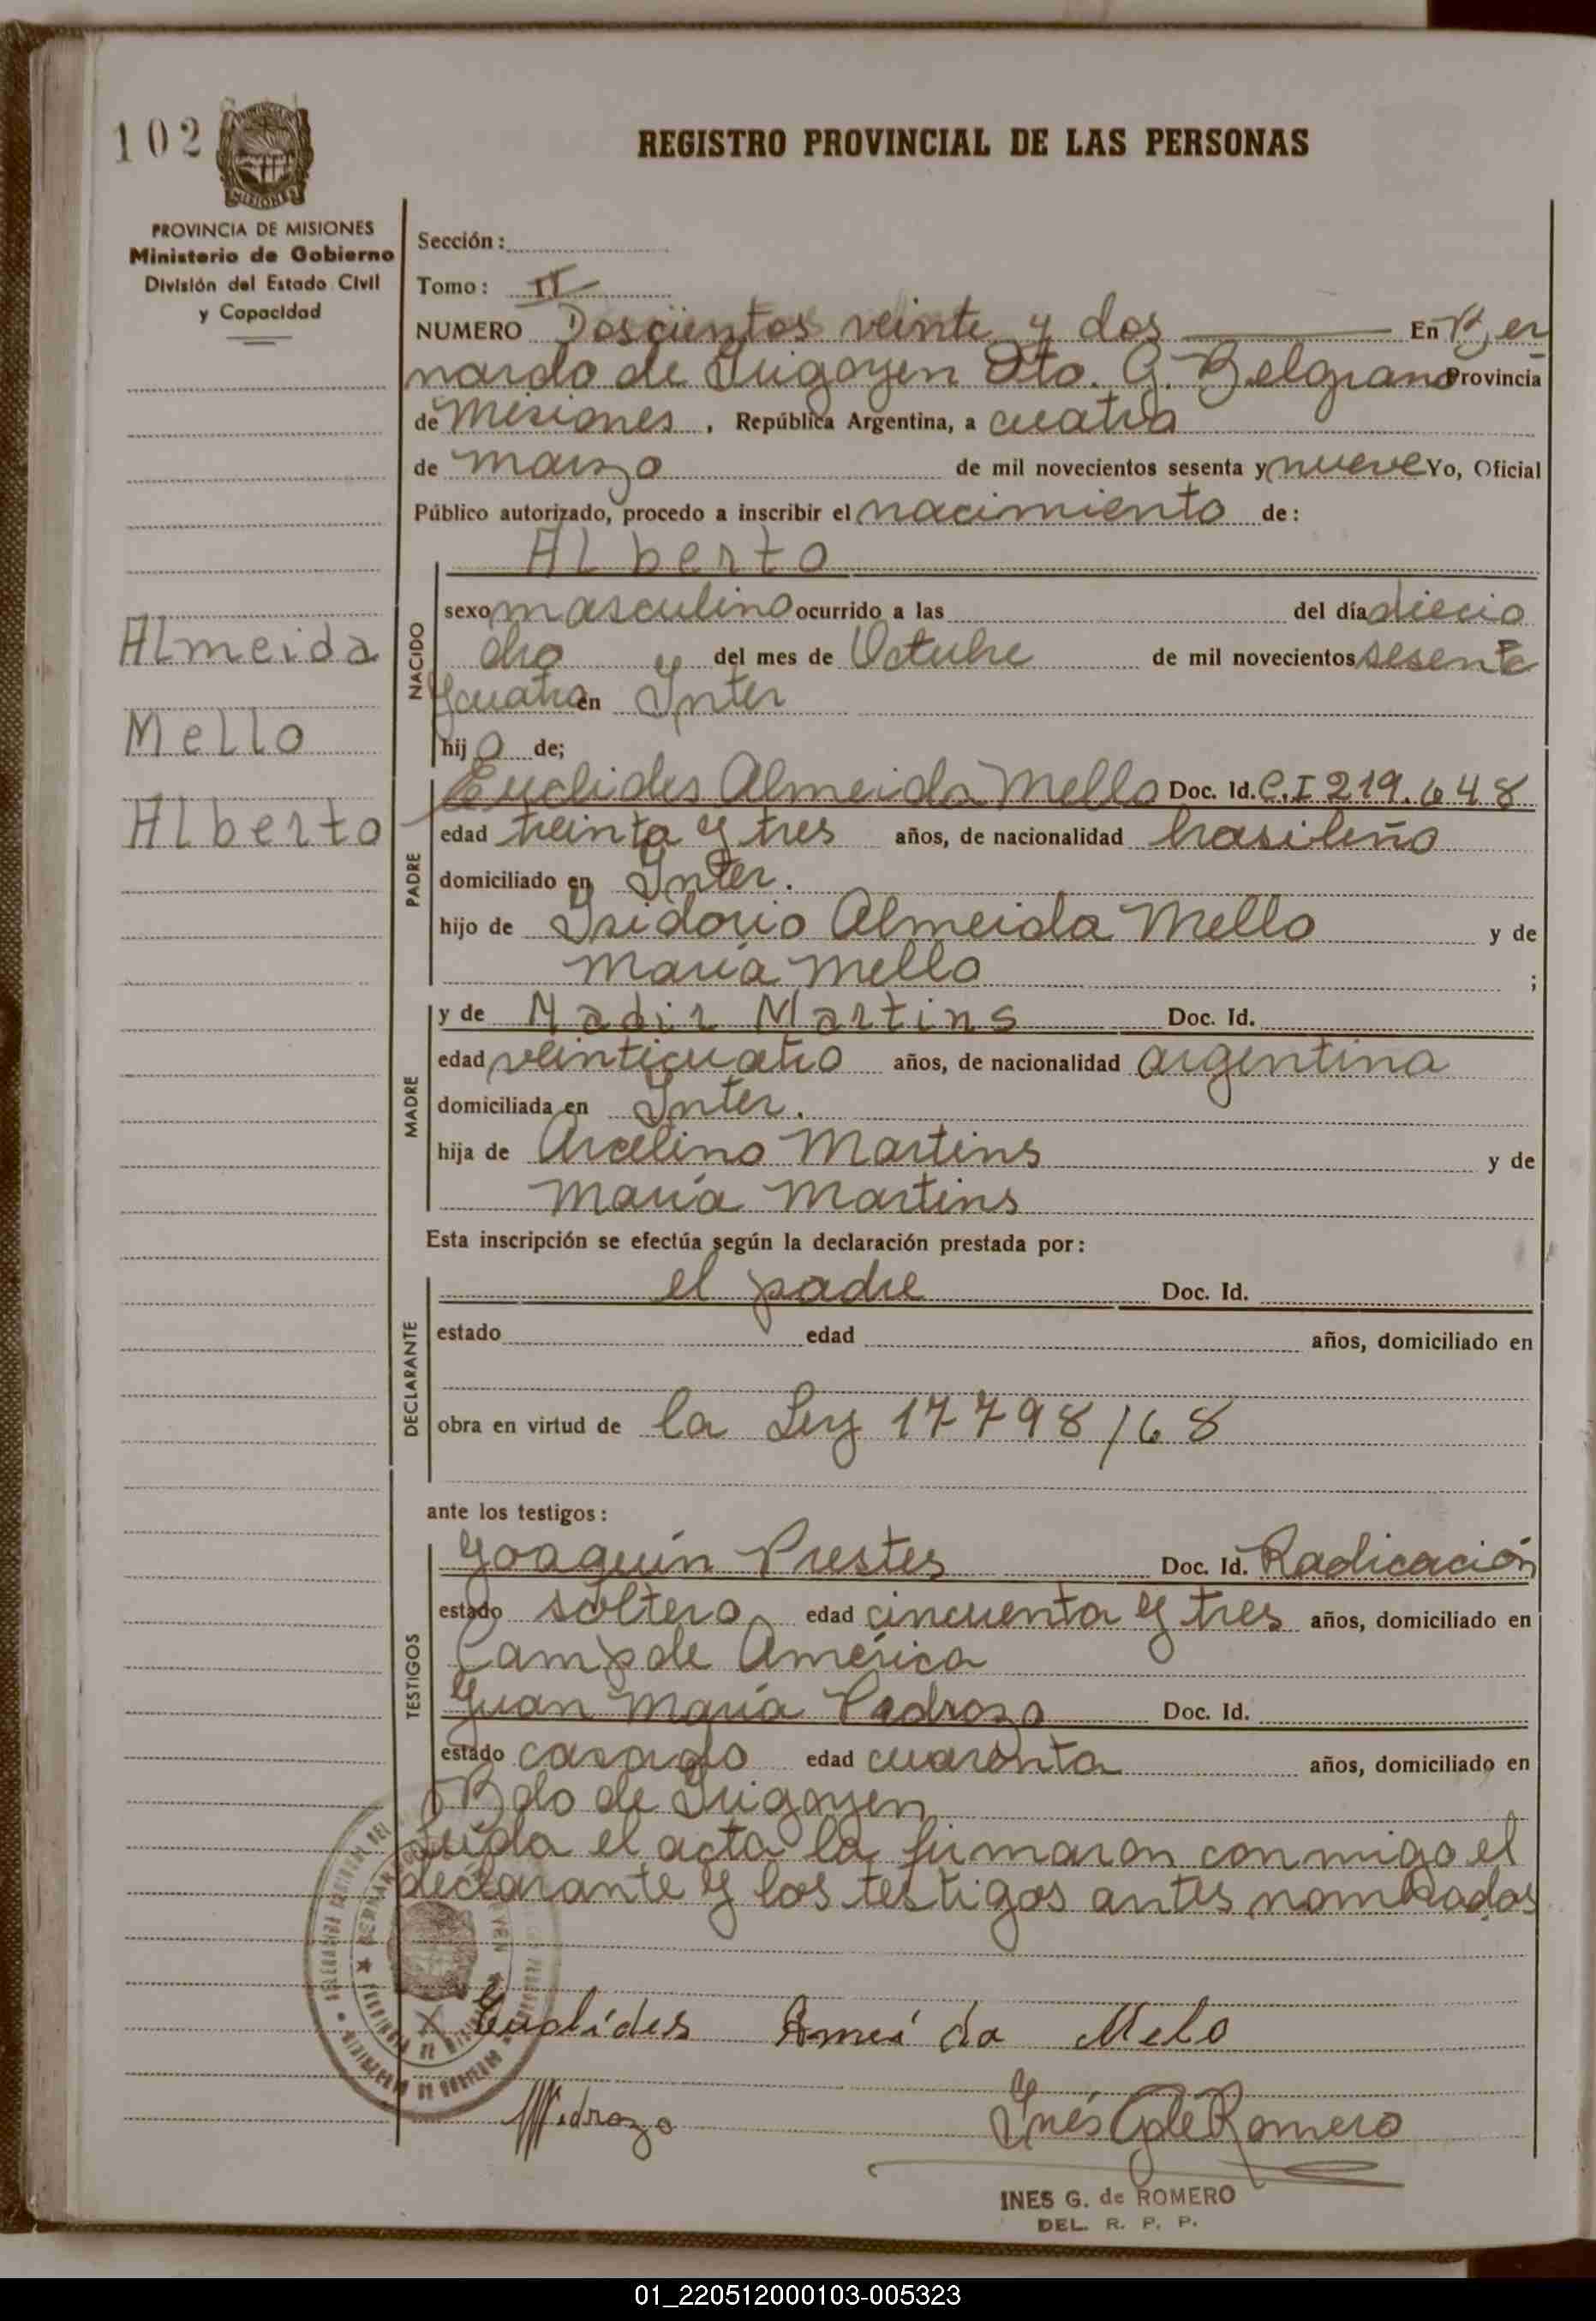 102
REGISTRO PROVINCIAL DE LAS PERSONAS
PROVINCIA DE MISIONES
Ministerio de Gobierno
División del Estado Civil
y Capacidad
Almeida
Mello
Alberto
Sección:
Tomo: II
NUMERO Doscientos veinte y dos En Ber
nardo de Irigoyen Dto. G. Belgrano Provincia
de Misiones, República Argentina, a cuatro
de marzo de mil novecientos sesenta y nueve Yo, Oficial
Público autorizado, procedo a inscribir el nacimiento de:
Alberto
NACIDO
sexo masculino ocurrido a las del día diecio
cho del mes de Octubre de mil novecientos sesenta
y cuatro en Inter
hijo de;
PADRE
Euclides Almeida Mello Doc. Id. C.I 219.648
edad treinta y tres años, de nacionalidad brasileño
domiciliado en Inter.
hijo de Isidorio Almeida Mello y de
María Mello ;
MADRE
y de Nadir Martins Doc. Id.
edad veinticuatro años, de nacionalidad argentina
domiciliada en Inter.
hija de Arcelino Martins y de
María Martins
Esta inscripción se efectúa según la declaración prestada por:
DECLARANTE
el padre Doc. Id.
estado edad años, domiciliado en
obra en virtud de la Ley 17798/68
ante los testigos:
TESTIGOS
Joaquín Prestes Doc. Id. Radicación
estado soltero edad cincuenta y tres años, domiciliado en
Camp de América
Juan María Pedrozo Doc. Id.
estado casado edad cuarenta años, domiciliado en
Bdo de Irigoyen
Leída el acta la firmaron conmigo el
declarante y los testigos antes nombrados
Euclídes Ameida Melo
Pedrozo
Inés G de Romero
INES G. de ROMERO
DEL. R. P. P.
01_220512000103-005323